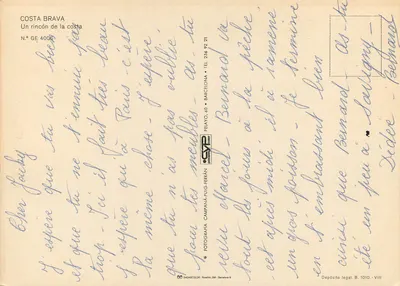 COSTA BRAVA
Un rincón de la costa
N.º GE 4006
Cher Jacky
J'espère que tu vas bien
et que tu ne t'ennuis pas
trop - Ici il fait très beau
J'espère qu'à Paris c'est
la même chose - J'espère
que tu n'as pas oublié
pour les meubles. as tu
revu Marcel - Bernard va
tout les jours à la pêche
cet après midi il a ramené
un gros poisson - Je termine
en t'embrassant bien
ainsi que Bernard - as tu
été un peu à Savigny -
Didier Bernard
FOTOGRAFIA CAMPAÑÁ-PUIG-FERRÁN
CYP
PELAYO, 60 • BARCELONA • TEL. 236 92 21
Depósito legal B.